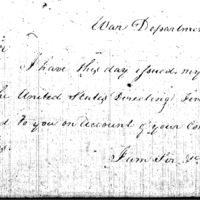 War Departmen
I have this day issued my
United States directing
to you on account of your Con
I am Sir